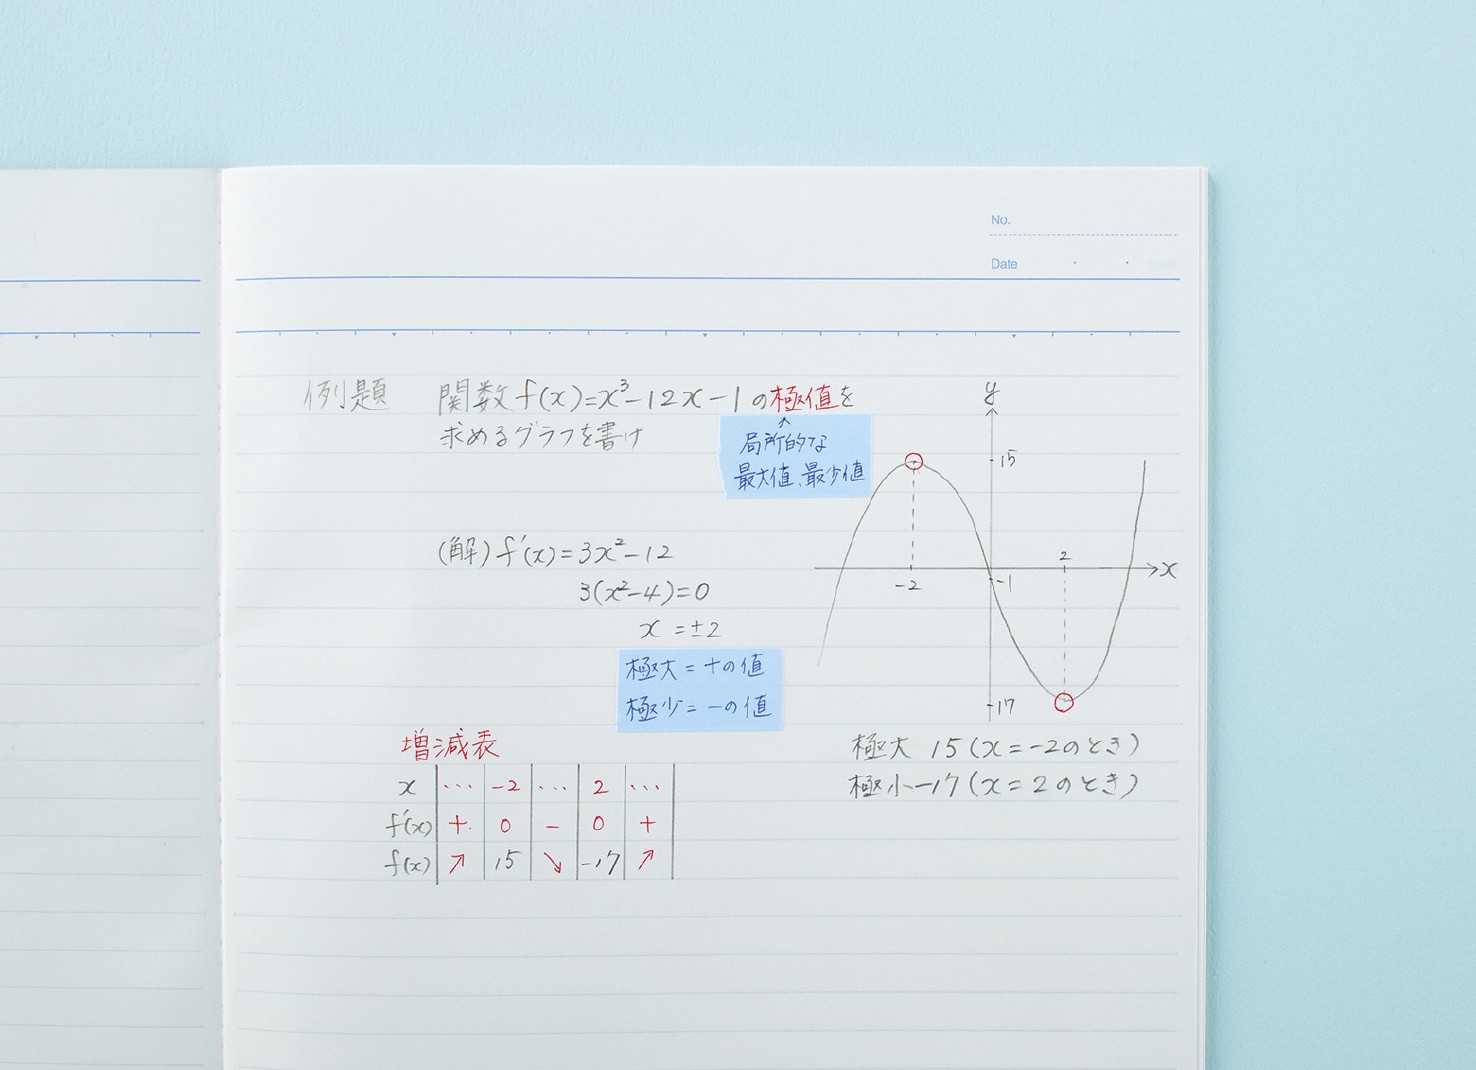 No.
Date
例題 関数 f(x)=x³-12x-1の極値を
求めるグラフを書け
↑
局所的な
最大値、最少値
(解) f'(x)=3x²-12
3(x²-4)=0
x =±2
極大=+の値
極少=-の値
増減表
x … -2 … 2 …
f'(x) + 0 - 0 +
f(x) ↗ 15 ↘ -17 ↗
y
15
2
x
-2
-1
-17
極大 15(x=-2のとき)
極小-17(x=2のとき)